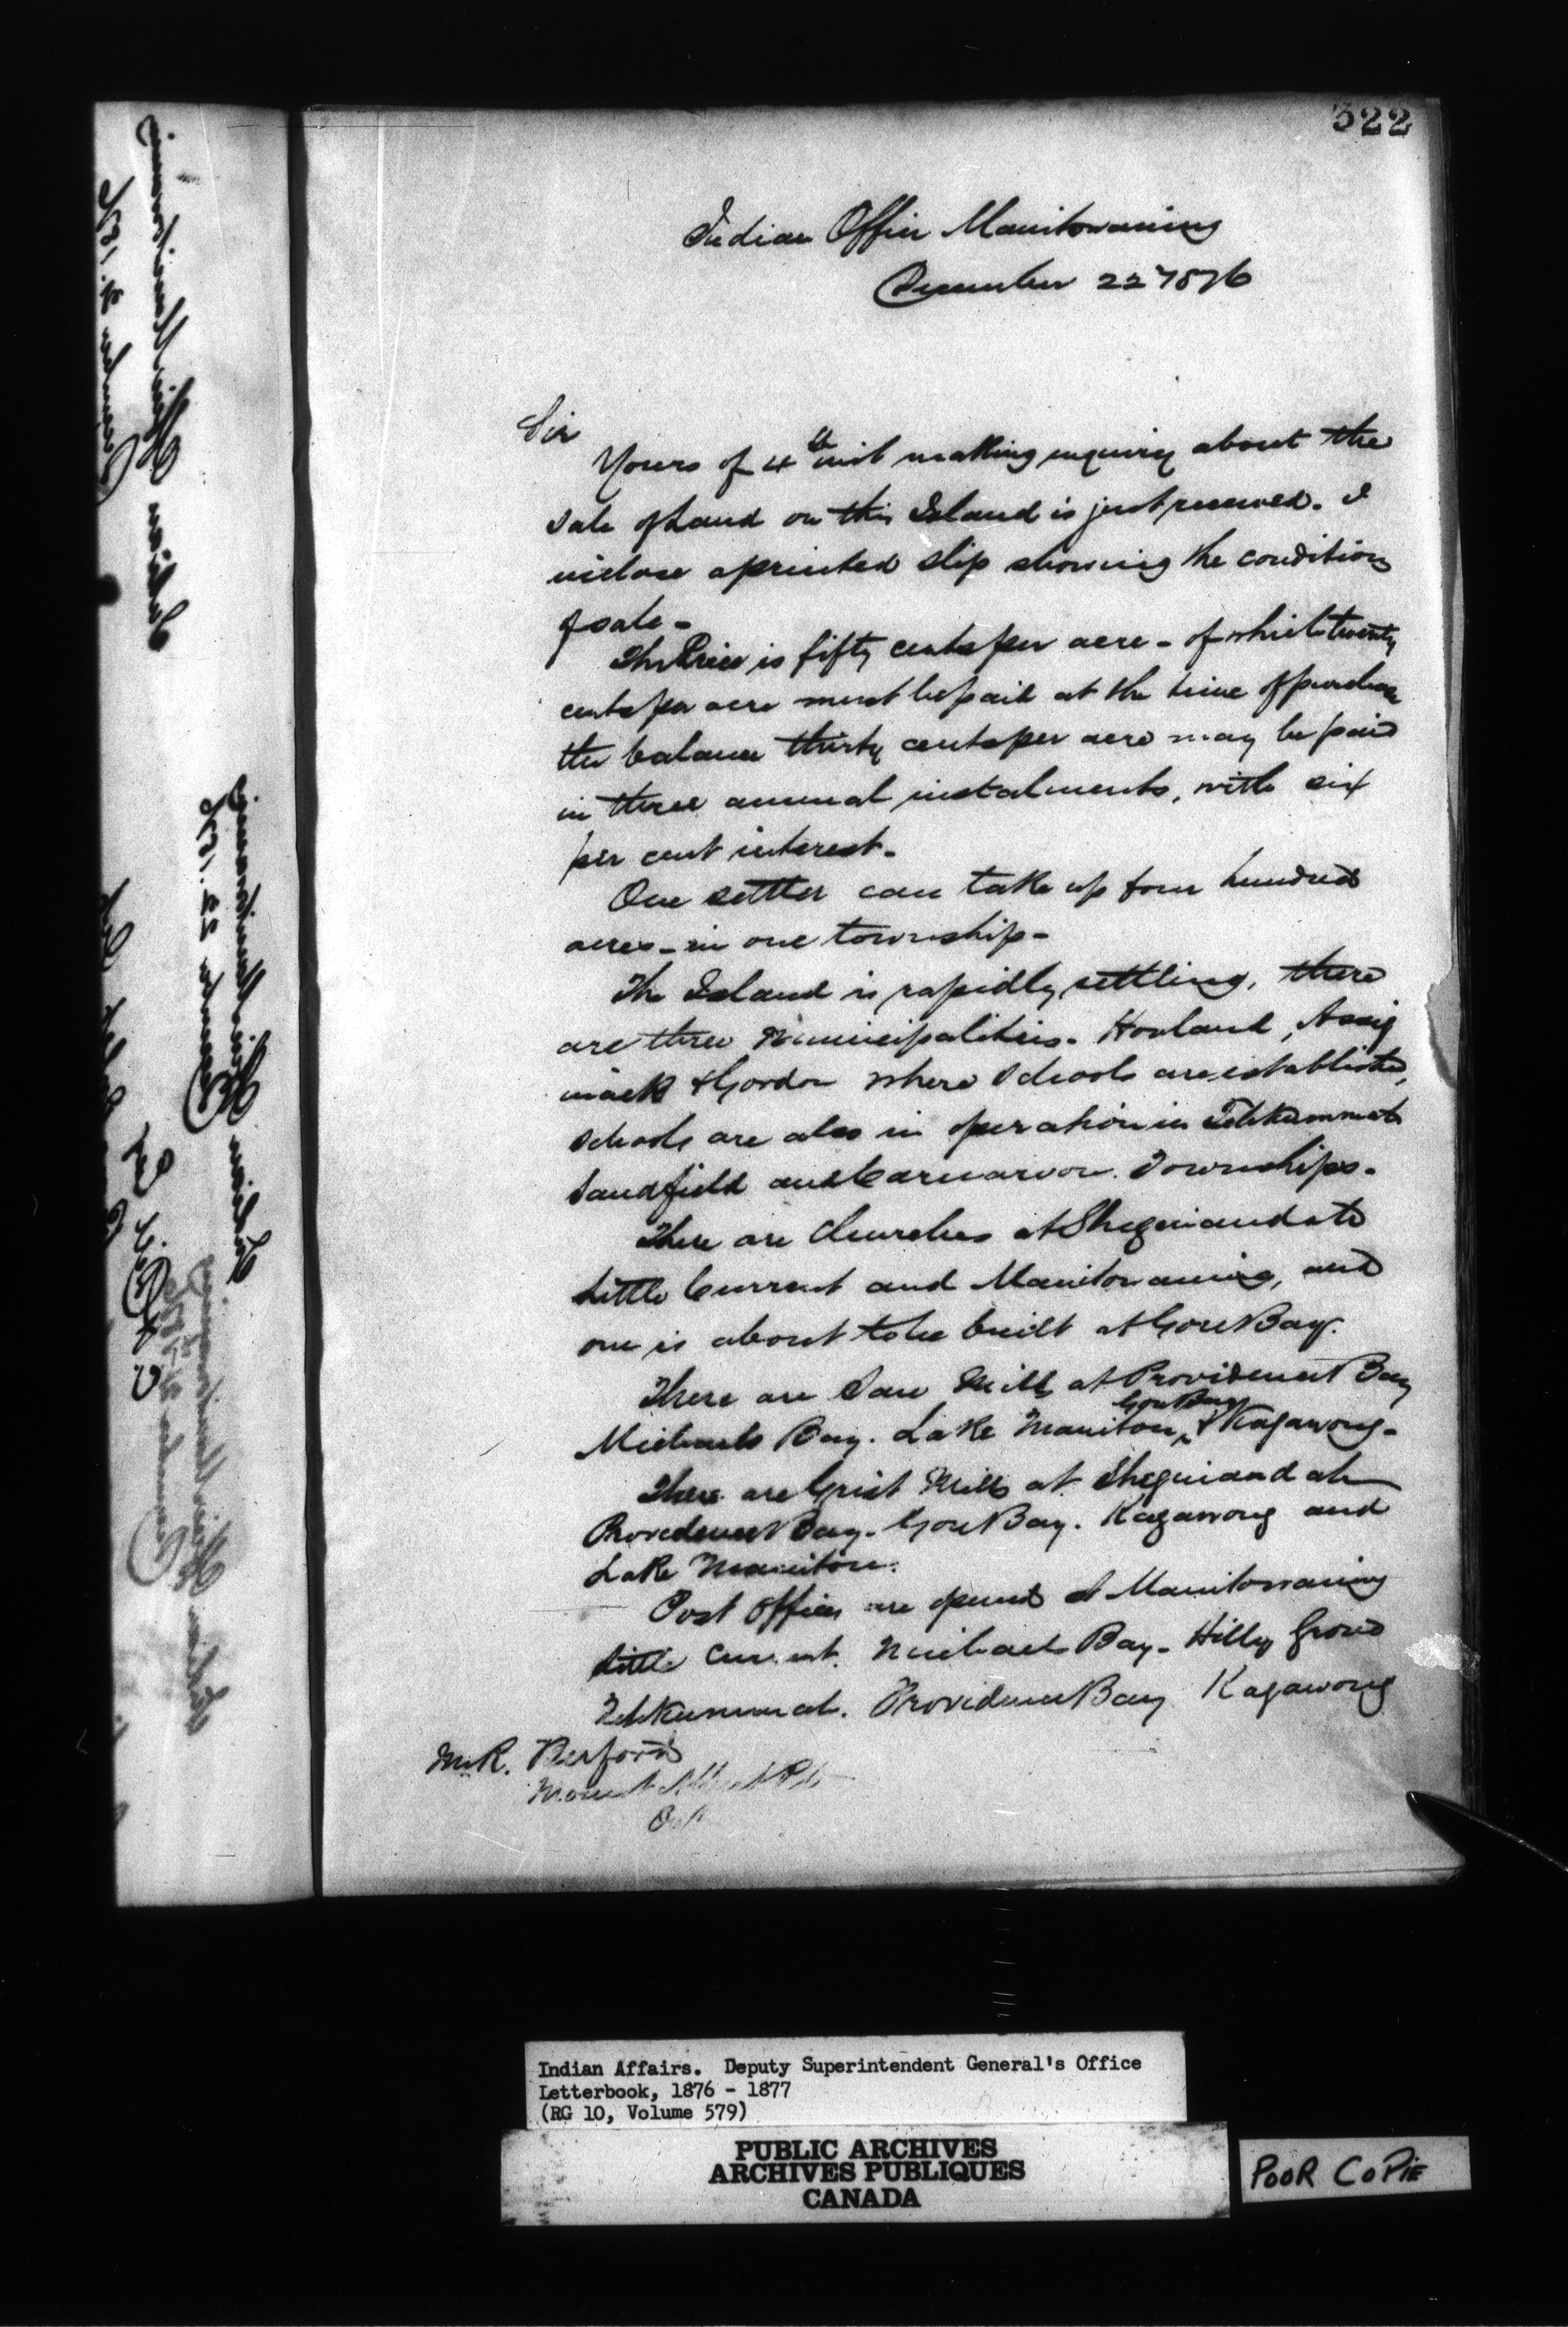 322
Indian Office Manitowaning
December 22 1876
Sir
Yours of 4th inst making inquiry about the
sale of Land on this Island is just received. I
inclose a printed slip showing the conditions
of sale -
The Price is fifty cents per acre - of which twenty
cents per acre must be paid at the time of purchase
the balance thirty cents per acre may be paid
in three annual instalments, with six
per cent interest.
One settler can take up four hundred
acres - in one township -
The Island is rapidly settling, there
are three Municipalities. Howland, Assig
inack & Gordon where Schools are established,
Schools are also in operation in Tehkummah
Sandfield and Carnarvon Townships.
There are Churches at Sheguiandah
Little Current and Manitowaning, and
one is about to be built at Gore Bay.
There are Saw Mills at Providence Bay
Michaels Bay. Lake Manitou, Gore Bay & Kagawong -
There are Grist Mills at Sheguiandah
Providence Bay. Gore Bay. Kagawong and
Lake Manitou.
Post Offices are opened at Manitowaning
Little Current. Michaels Bay - Hilly Grove
Tehkummah. Providence Bay Kagawong
Mr R. Perford
Mount
Ont
Indian Affairs. Deputy Superintendent General's Office
Letterbook, 1876 - 1877
(RG 10, Volume 579)
PUBLIC ARCHIVES
ARCHIVES PUBLIQUES
CANADA
POOR COPIE